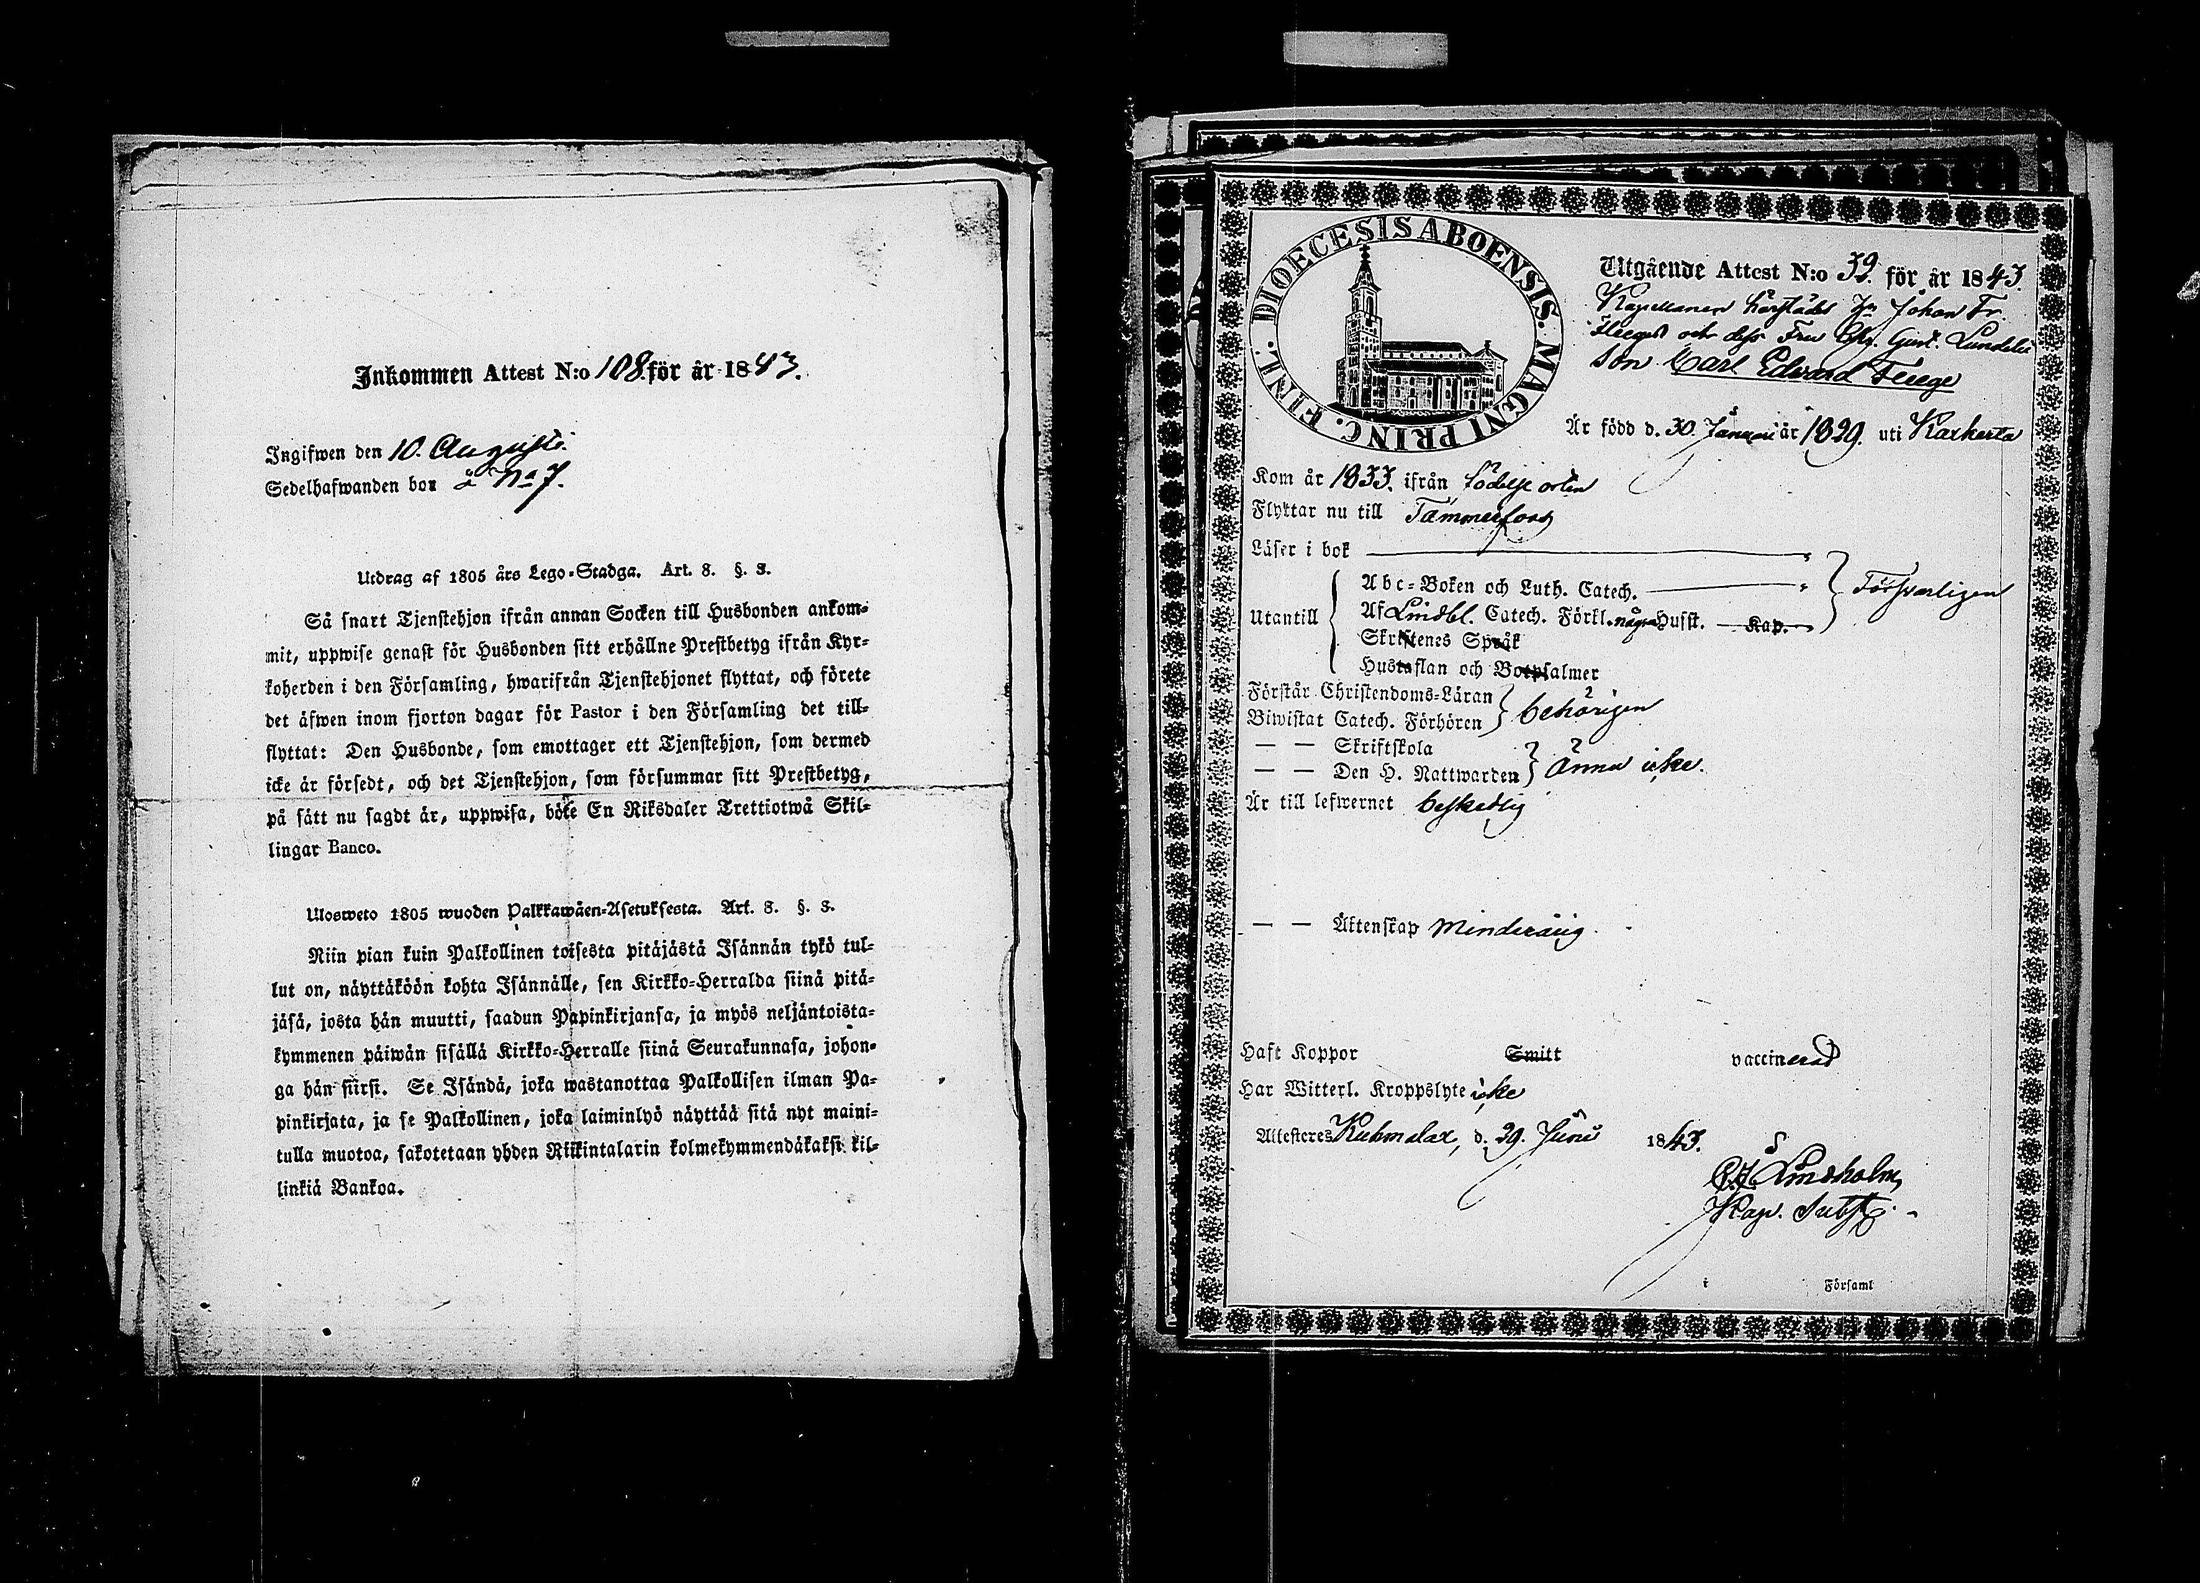 Inkommen Attest N:o 108. för år 1843.
Ingifwen den 10. Augusti.
Sedelhafwanden bor å No 7.
Utdrag af 1805 års Lego-Stadga. Art. 8. §. 3.
Så snart Tjenstehjon ifrån annan Socken till Husbonden ankom-
mit, uppwise genast för Husbonden sitt erhållne Prestbetyg ifrån Kyr-
koherden i den Församling, hwarifrån Tjenstehjonet flyttat, och förete
det äfwen inom fjorton dagar för Pastor i den Församling det till-
flyttat: Den Husbonde, som emottager ett Tjenstehjon, som dermed
icke är försedt, och det Tjenstehjon, som försummar sitt Prestbetyg,
på sätt nu sagdt är, uppwisa, böte En Riksdaler Trettiotwå Skil-
lingar Banco.
Ulosweto 1805 wuoden Palkkawäen-Asetuksesta. Art. 8. §. 3.
Niin pian kuin Palkollinen toisesta pitäjästä Isännän tykö tul-
lut on, näyttäköön kohta Isännälle, sen Kirkko-Herralda siinä pitä-
jäsä, josta hän muutti, saadun Papinkirjansa, ja myös neljäntoista-
kymmenen päiwän sisällä Kirkko-Herralle siinä Seurakunnasa, johon-
ga hän siirsi. Se Isändä, joka wastanottaa Palkollisen ilman Pa-
pinkirjata, ja se Palkollinen, joka laiminlyö näyttää sitä nyt maini-
tulla muotoa, sakotetaan yhden Riikintalarin kolmekymmendäkaksi kil-
linkiä Bankoa.
DIOECESIS ABOENSIS. MAGNI PRINC. FINL:
Utgående Attest N:o 39. för år 1843.
Kapellanen härstädes Johan Fr.
och dess Fru Gust.
Son Carl Edvard
Är född d. 30. Januari år 1829. uti Karkerta
Kom år 1833. ifrån födelse orten
Flyttar nu till Tammerfors
Läser i bok
Utantill
Abc-Boken och Luth. Catech.
Försvarligen
Af Lindbl. Catech. Förkl. några Husst. Kap.
Skriftenes Språk
Hustaflan och Botpsalmer
Förstår Christendoms-Läran
Biwistat Catech. Förhören
behörigen
— — Skriftskola
— — Den H. Nattwarden
Ännu icke.
Är till lefwernet beskedlig
— — Äktenskap Minderårig.
Haft Koppor Smitt vaccinerad
Har Witterl. Kroppslyte icke
Attesteres Kuhmalax, d. 29. Junii 1843.
Lindholm,
Kap. Subst.
i Församl